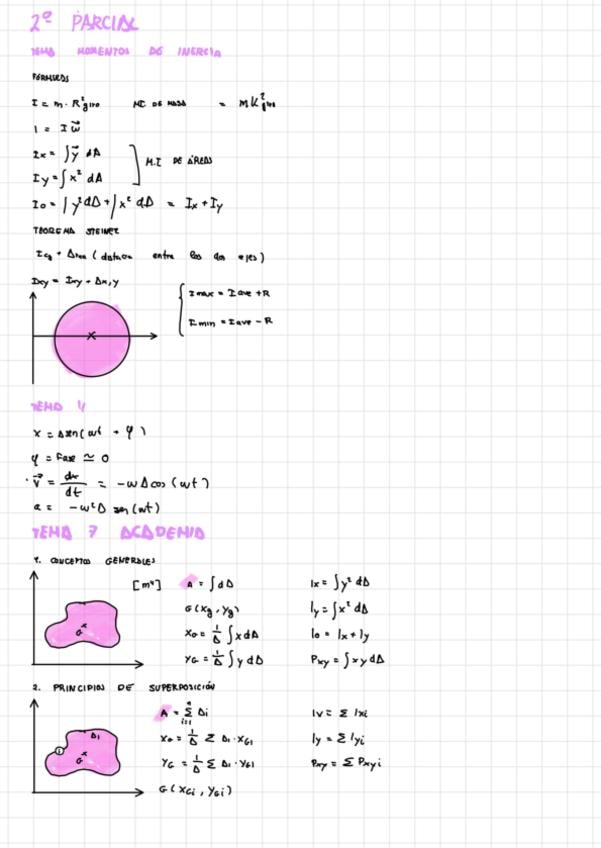 2º PARCIAL
TEMA MOMENTOS DE INERCIA
FÓRMULAS
I = m · R²giro MI DE MASA = mK²giro
I = I ω⃗
Ix = ∫ y⃗ dA
Iy = ∫ x² dA
M.I DE ÁREAS
I0 = ∫ y² dA + ∫ x² dA = Ix + Iy
TEOREMA STEINER
entre los dos ejes)
Ixy = Ixy + Ax,y
Imax = Iave + R
Imin = Iave - R
x
TEMA 4
x = Asen(ωt + φ)
φ = Fase ≃ 0
v⃗ = dx/dt = -ωA cos (ωt)
a = -ω²A sen(ωt)
TEMA 7 ACADEMIA
1. CONCEPTOS GENERALES
[m⁴] A = ∫ dA Ix = ∫ y² dA
G(xg, yg) Iy = ∫ x² dA
xG = 1/A ∫ x dA I0 = Ix + Iy
yG = 1/A ∫ y dA Pxy = ∫ xy dA
G x
2. PRINCIPIOS DE SUPERPOSICIÓN
A = Σ Ai i=1 n Iv = Σ Ixi
xG = 1/A Σ Ai · xGi Iy = Σ Iyi
yG = 1/A Σ Ai · yGi Pxy = Σ Pxyi
G(xGi, yGi)
A1
G x